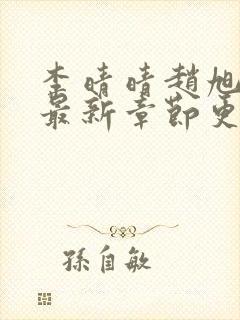 李晴晴趙旭
最新章節更
孫自敏